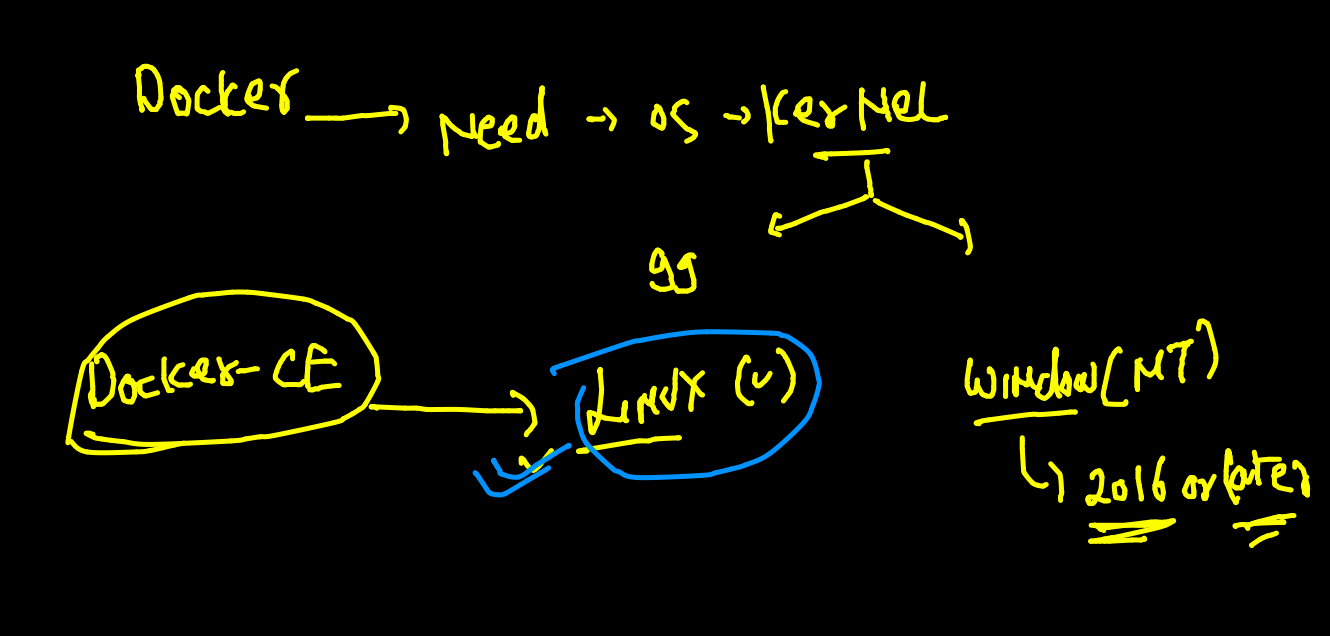 Docker → Need → OS → KerNel
99
Docker-CE → LiNUX (v)
Window (NT)
2016 or later